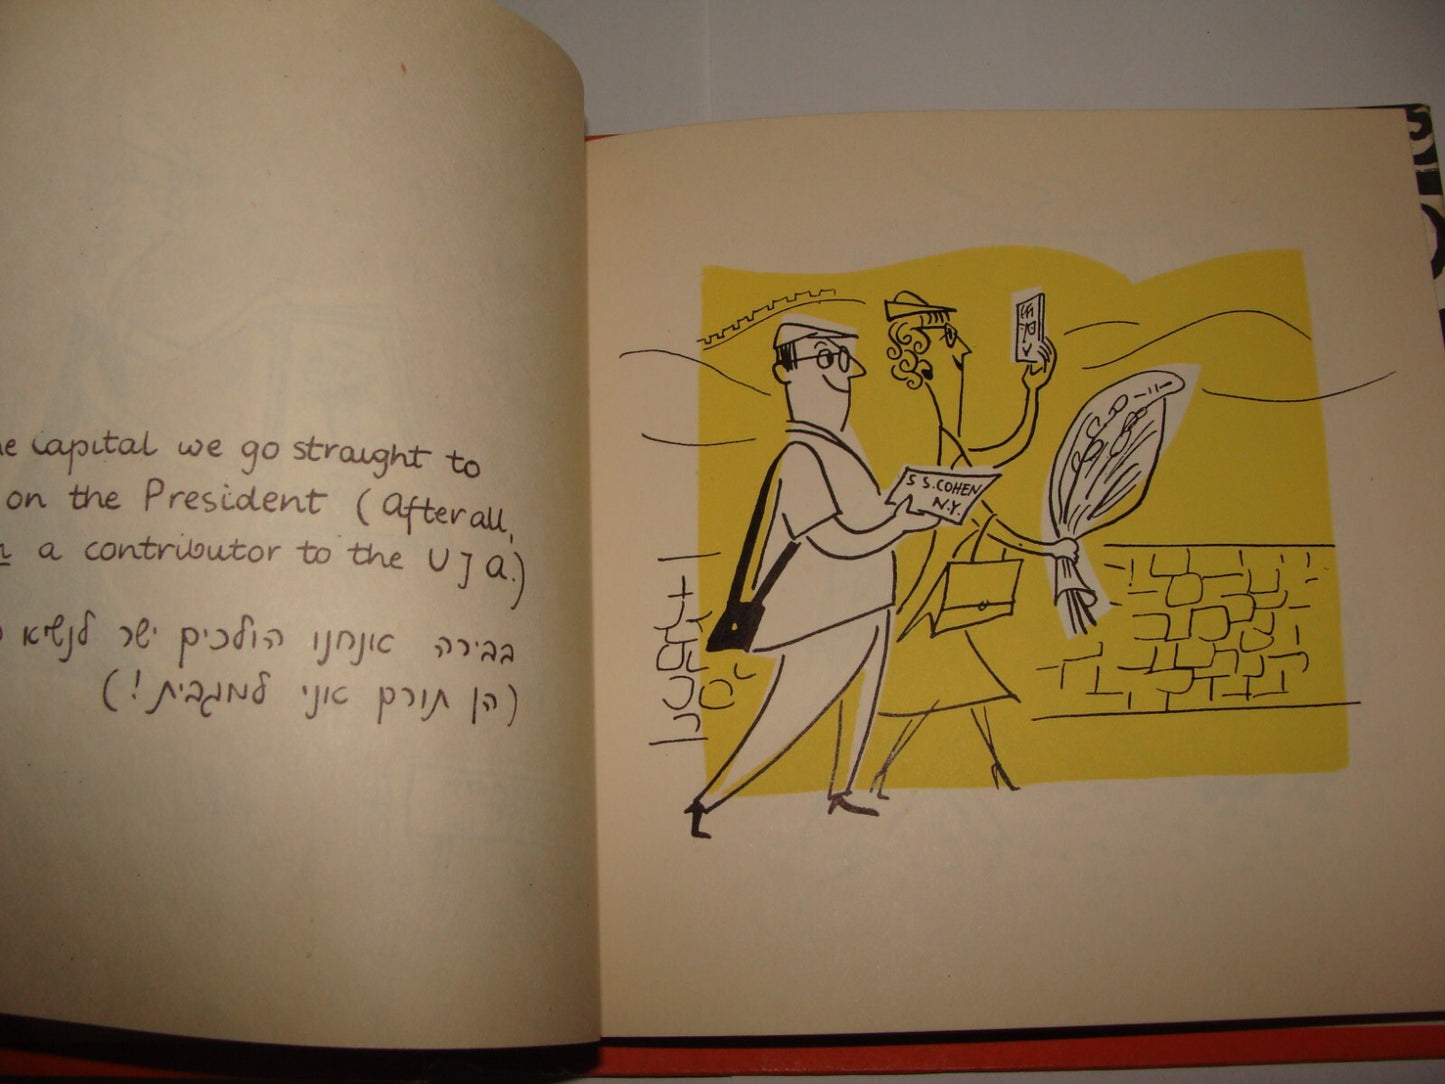 capital we go straight to
on the President (After all,
a contributor to the UJA.)
בבירה אנחנו הולכים ישר לנשיא
(הן תורם אני למגבית!)
S S. COHEN
N.Y.